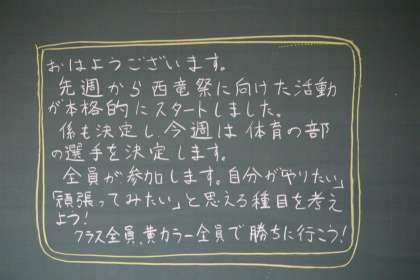 おはようございます。
先週から西竜祭に向けた活動
が本格的にスタートしました。
係も決定し、今週は体育の部
の選手を決定します。
全員が参加します。自分がやりたい」
「頑張ってみたい」と思える種目を考え
よう！
クラス全員、黄カラー全員で勝ちに行こう！